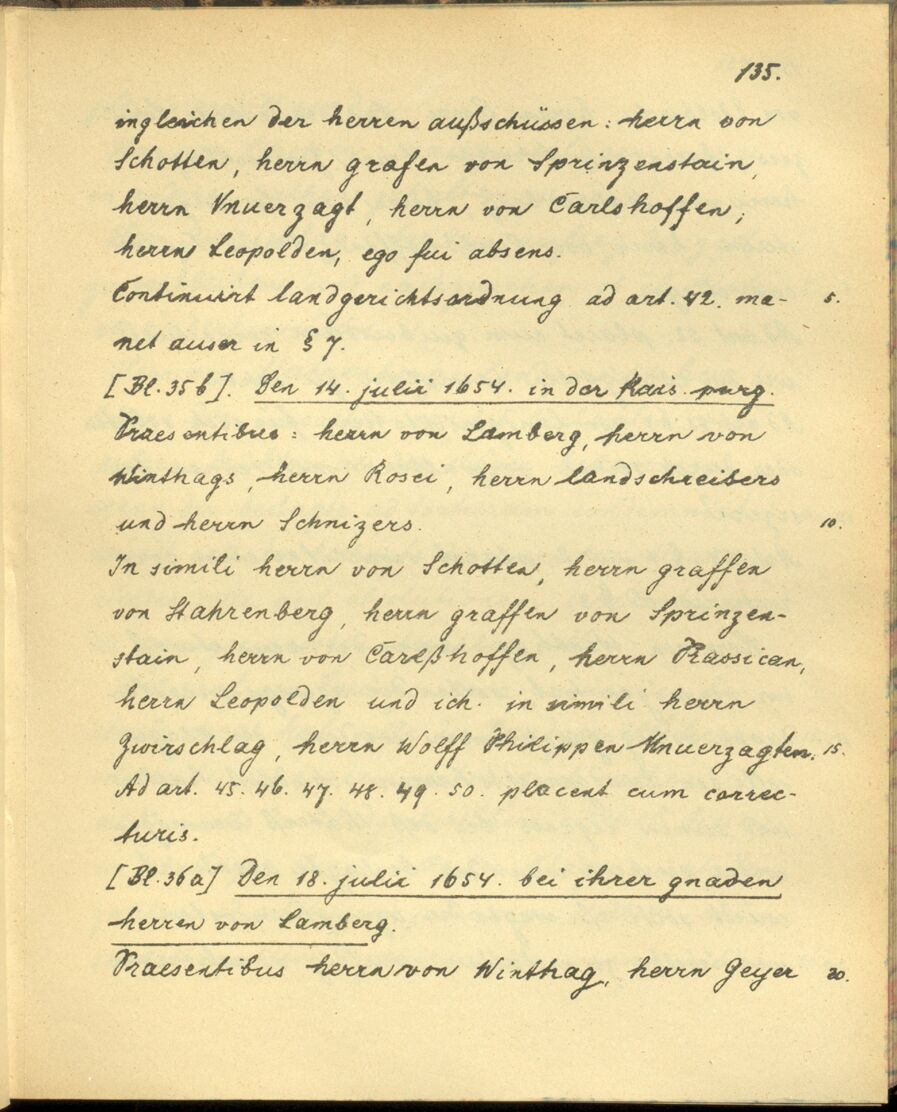 135.
ingleichen der herren außschüssen: herrn von
Schotten, herrn grafen von Sprinzenstain,
herrn Vnuerzagt, herrn von Carlshoffen,
herrn Leopolden, ego fui absens.
Continuirt landgerichtsordnung ad art. 42. ma- 5.
net auser in § 7.
[Bl. 35b]. Den 14. julii 1654. in der Kais. purg.
Praesentibus: herrn von Lamberg, herrn von
Winthags, herrn Rosei, herrn landschreibers
und herrn Schnizers. 10.
In simili herrn von Schotten, herrn graffen
von Stahrenberg, herrn graffen von Sprinzen-
stain, herrn von Carlßhoffen, herrn Plassican,
herrn Leopolden und ich. in simili herrn
Zwirschlag, herrn Wolff Philippen Vnuerzagten. 15.
Ad art. 45. 46. 47. 48. 49. 50. placent cum correc-
turis.
[Bl. 36a] Den 18. julii 1654. bei ihrer gnaden
herren von Lamberg.
Praesentibus herrn von Winthag, herrn Geyer 20.